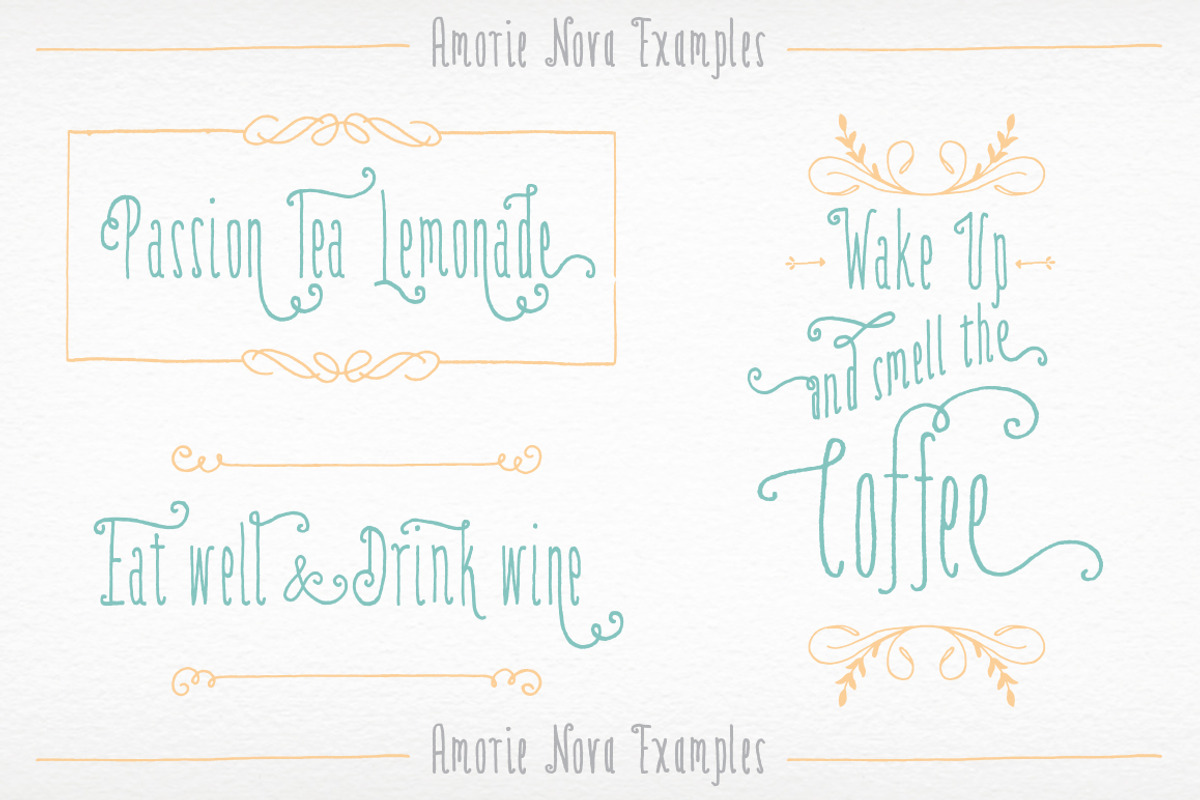 Amorie Nova Examples
Passion Tea Lemonade
Eat well & Drink wine
Wake Up
and smell the
Coffee
Amorie Nova Examples